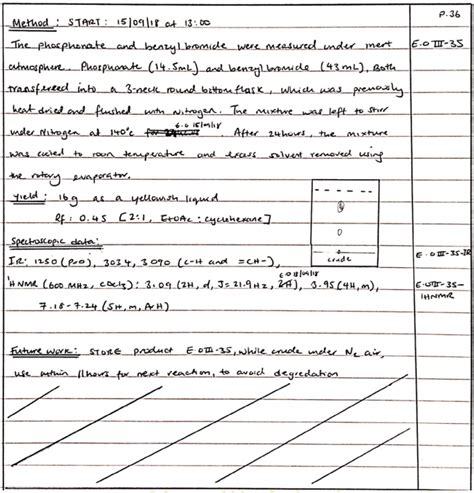 P.36
Method : START : 15/09/18 at 13:00
The phosphonate and benzyl bromide were measured under inert
E.O III-35
atmosphere. Phosphonate (14.5mL) and benzyl bromide (43mL), Both
transfereed into a 3-neck round bottom flask, which was previously
heat dried and flushed with Nitrogen. The mixture was left to stirr
under Nitrogen at 140°c for E.O 15/09/18 . After 24hours, the mixture
was cooled to room temperature and excess solvent removed using
the rotary evaporator.
Yield : 16g as a yellowish liquid
Rf : 0.45 [2:1, EtOAc : cyclohexane]
crude
Spectroscopic data:
IR: 1250 (P=O), 3034, 3090 (C-H and =CH-),
E.O III-35-IR
E.O 18/09/18
¹HNMR (600 MHz, CDCl3): 3.09 (2H, d, J=21.9Hz, 2H), 3.95 (4H,m),
E.OIII-35-
1HNMR
7.18-7.24 (5H, m, ArH)
Future work: STORE product E.OIII-35, while crude under N2 air,
use within /1hours for next reaction, to avoid degredation